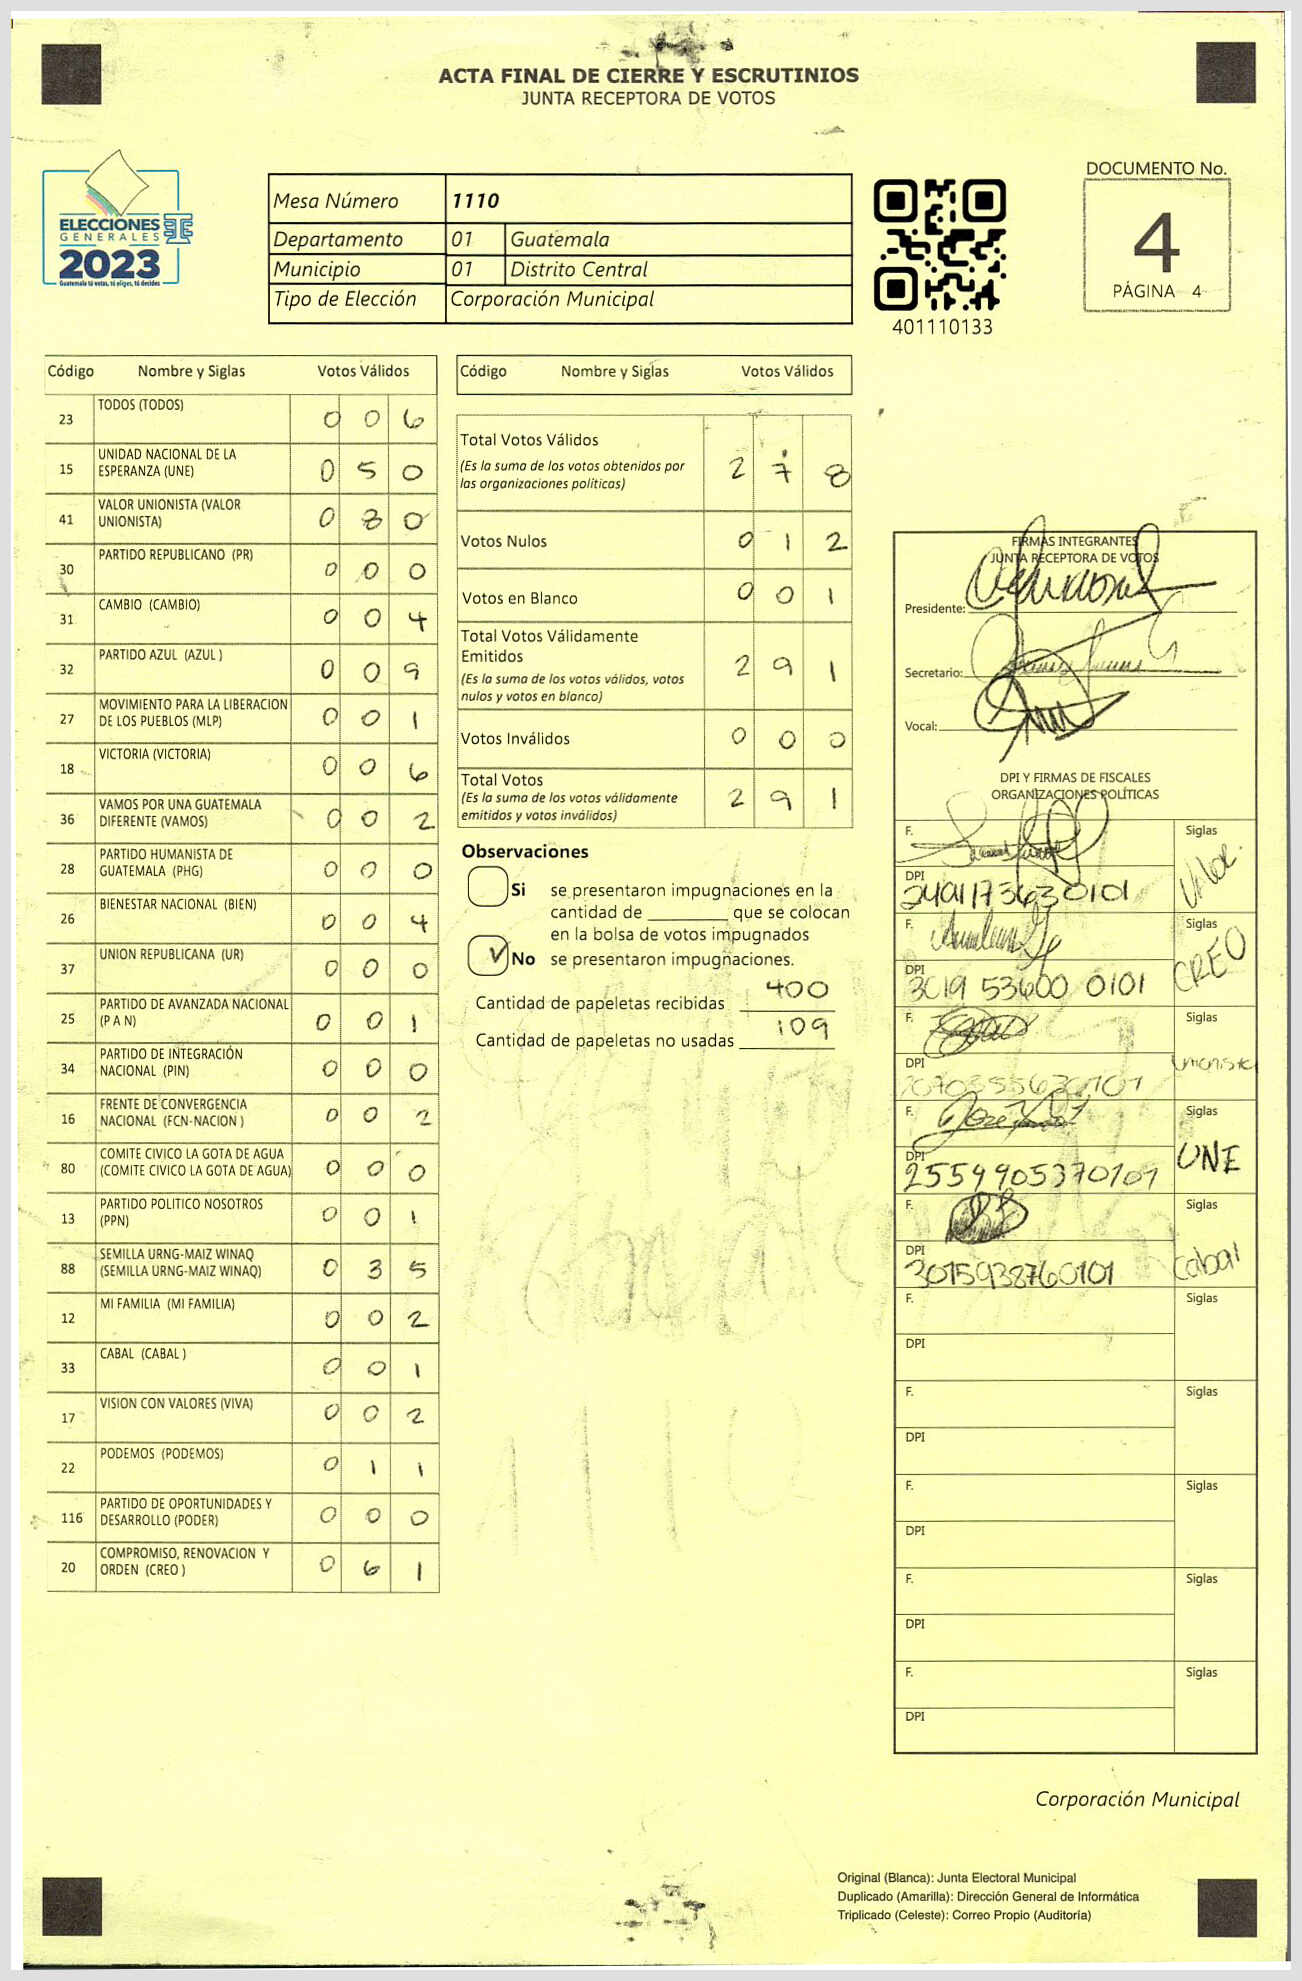 ACTA FINAL DE CIERRE Y ESCRUTINIOS
JUNTA RECEPTORA DE VOTOS
ELECCIONES
GENERALES
2023
Guatemala tú votas, tú eliges, tú decides
Mesa Número 1110
Departamento 01 Guatemala
Municipio 01 Distrito Central
Tipo de Elección Corporación Municipal
401110133
DOCUMENTO No.
4
PÁGINA 4
Código Nombre y Siglas Votos Válidos
23 TODOS (TODOS) 0 0 6
15 UNIDAD NACIONAL DE LA ESPERANZA (UNE) 0 5 0
41 VALOR UNIONISTA (VALOR UNIONISTA) 0 8 0
30 PARTIDO REPUBLICANO (PR) 0 0 0
31 CAMBIO (CAMBIO) 0 0 4
32 PARTIDO AZUL (AZUL ) 0 0 9
27 MOVIMIENTO PARA LA LIBERACION DE LOS PUEBLOS (MLP) 0 0 1
18 VICTORIA (VICTORIA) 0 0 6
36 VAMOS POR UNA GUATEMALA DIFERENTE (VAMOS) 0 0 2
28 PARTIDO HUMANISTA DE GUATEMALA (PHG) 0 0 0
26 BIENESTAR NACIONAL (BIEN) 0 0 4
37 UNION REPUBLICANA (UR) 0 0 0
25 PARTIDO DE AVANZADA NACIONAL (P A N) 0 0 1
34 PARTIDO DE INTEGRACIÓN NACIONAL (PIN) 0 0 0
16 FRENTE DE CONVERGENCIA NACIONAL (FCN-NACION ) 0 0 2
80 COMITE CIVICO LA GOTA DE AGUA (COMITE CIVICO LA GOTA DE AGUA) 0 0 0
13 PARTIDO POLITICO NOSOTROS (PPN) 0 0 1
88 SEMILLA URNG-MAIZ WINAQ (SEMILLA URNG-MAIZ WINAQ) 0 3 5
12 MI FAMILIA (MI FAMILIA) 0 0 2
33 CABAL (CABAL ) 0 0 1
17 VISION CON VALORES (VIVA) 0 0 2
22 PODEMOS (PODEMOS) 0 1 1
116 PARTIDO DE OPORTUNIDADES Y DESARROLLO (PODER) 0 0 0
20 COMPROMISO, RENOVACION Y ORDEN (CREO ) 0 6 1
Código Nombre y Siglas Votos Válidos
Total Votos Válidos 2 7 8
(Es la suma de los votos obtenidos por
las organizaciones políticas)
Votos Nulos 0 1 2
Votos en Blanco 0 0 1
Total Votos Válidamente
Emitidos 2 9 1
(Es la suma de los votos válidos, votos
nulos y votos en blanco)
Votos Inválidos 0 0 0
Total Votos 2 9 1
(Es la suma de los votos válidamente
emitidos y votos inválidos)
Observaciones
Si se presentaron impugnaciones en la
cantidad de ________ que se colocan
en la bolsa de votos impugnados
No se presentaron impugnaciones.
Cantidad de papeletas recibidas 400
Cantidad de papeletas no usadas 109
1110
FIRMAS INTEGRANTES
JUNTA RECEPTORA DE VOTOS
Presidente:
Secretario:
Vocal:
DPI Y FIRMAS DE FISCALES
ORGANIZACIONES POLÍTICAS
F. Siglas
DPI 2491173630101
F. Siglas CREO
DPI 3019 53600 0101
F. Siglas Unionista
DPI
F. Siglas UNE
DPI 2554905370101
F. Siglas Cabal
DPI 3015938760101
F. Siglas
DPI
F. Siglas
DPI
F. Siglas
DPI
F. Siglas
DPI
F. Siglas
DPI
Corporación Municipal
Original (Blanca): Junta Electoral Municipal
Duplicado (Amarilla): Dirección General de Informática
Triplicado (Celeste): Correo Propio (Auditoría)